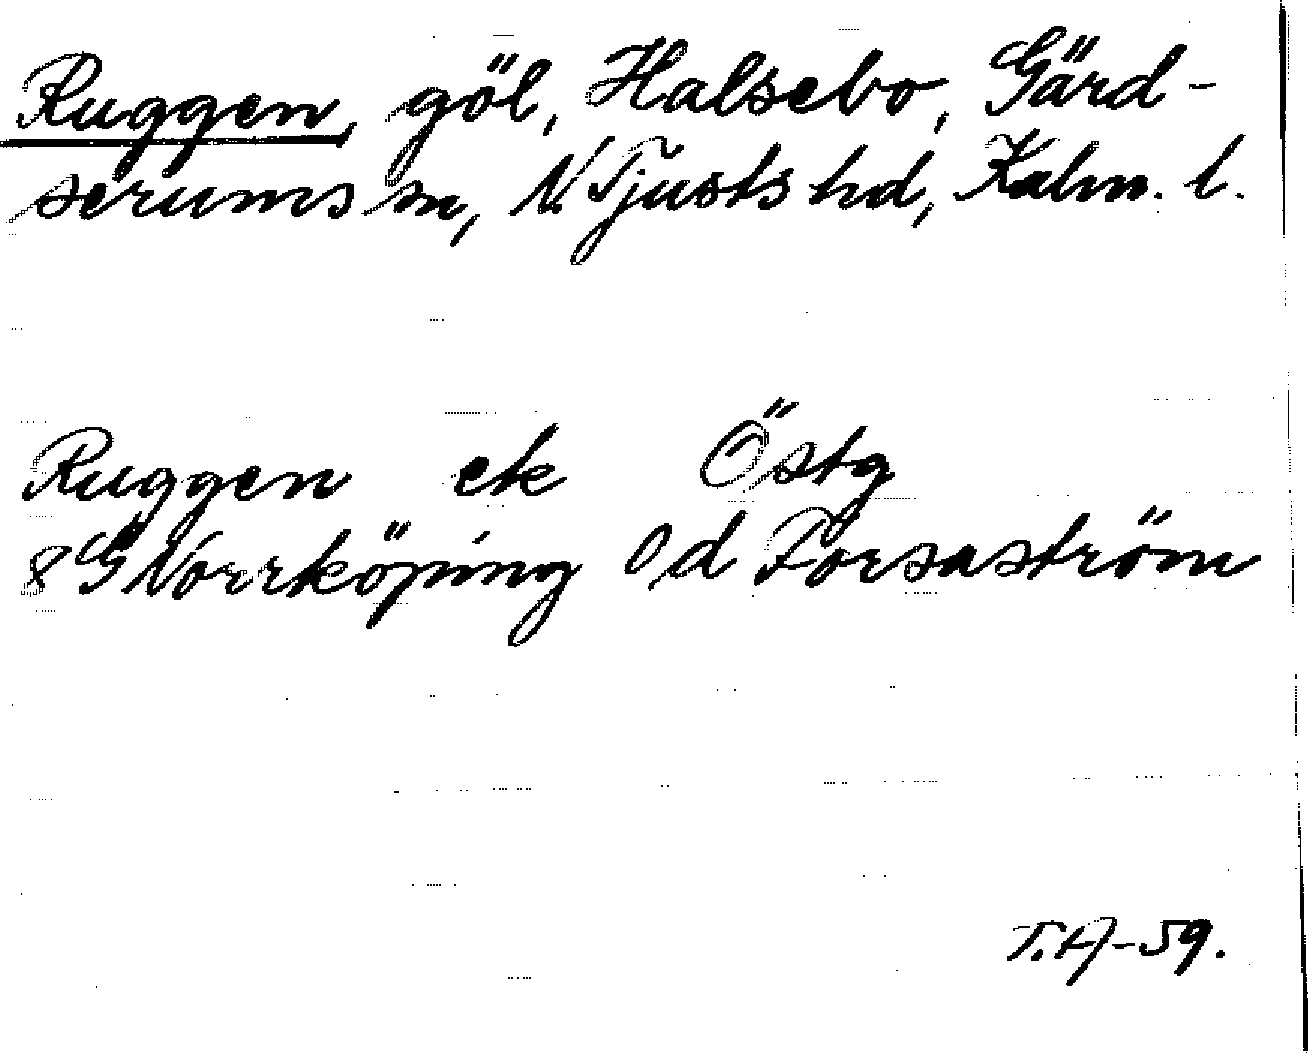 Ruggen, göl, Halsebo, Gärd-
serums sn, N. Tjusts hd, Kalm. l.
Ruggen ek Östg
8G Norrköping Od Forsaström
T.A-59.